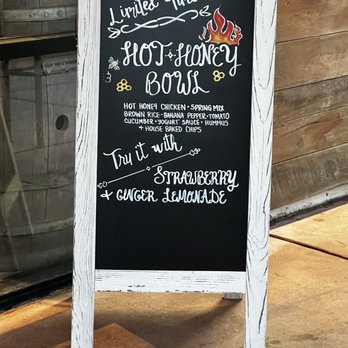 Limited Time
HOT HONEY
BOWL
HOT HONEY CHICKEN · SPRING MIX
BROWN RICE · BANANA PEPPER · TOMATO
CUCUMBER · YOGURT SAUCE · HUMMUS
+ HOUSE BAKED CHIPS
Try it with
STRAWBERRY
+ GINGER LEMONADE